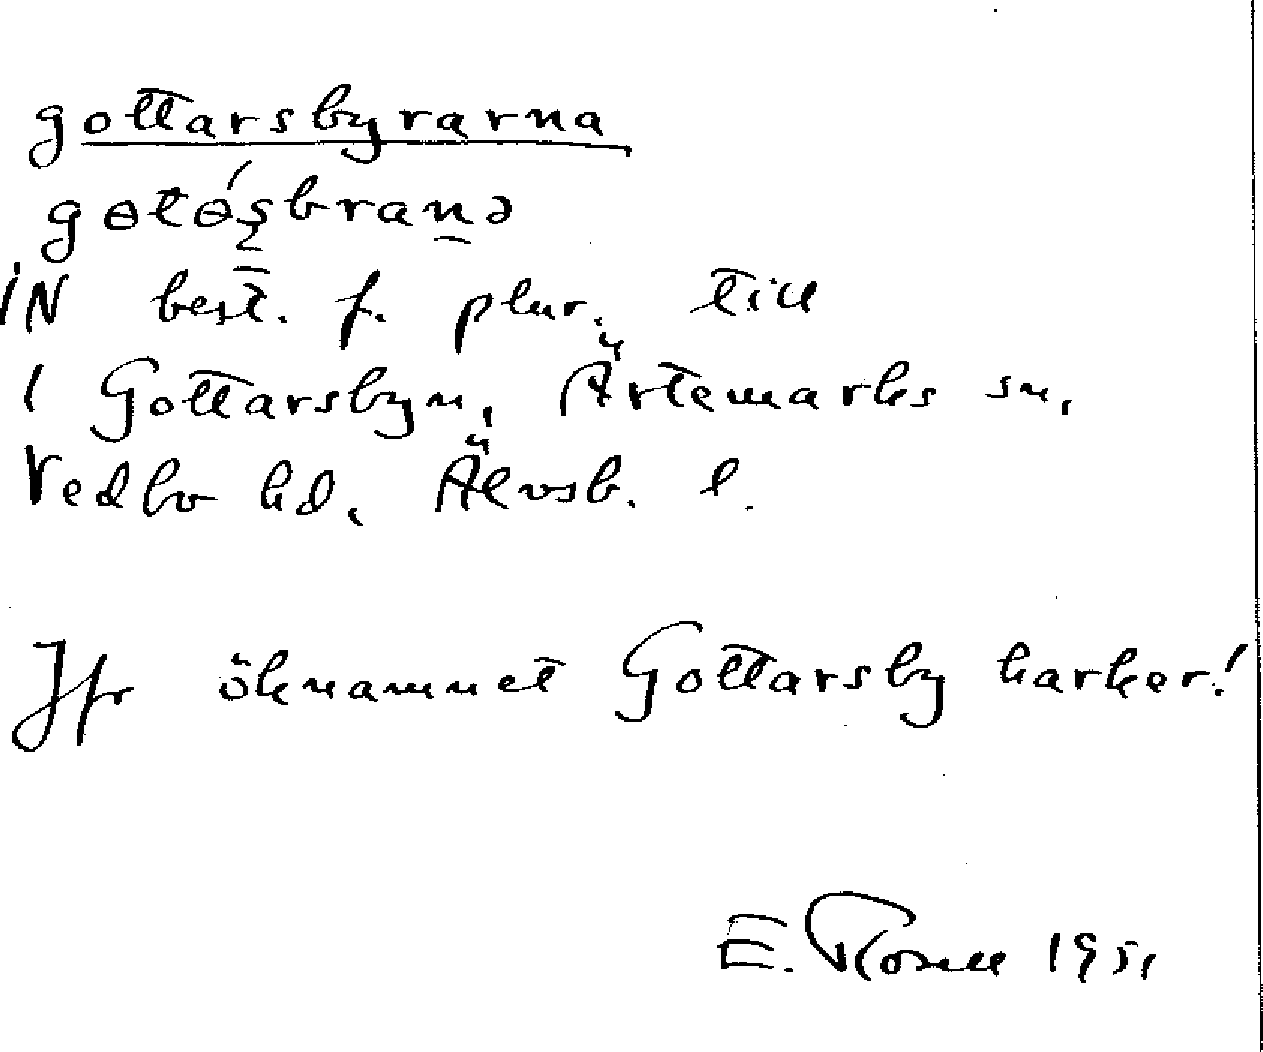 gottarsbyrarna
gɵtɵ́s̨branə
IN best. f. plur. till
( Gottarsbyn, Ärtemarks sn,
Vedbo hd, Älvsb. l.
Jfr öknamnet Gottarsby harker!
E. 1951